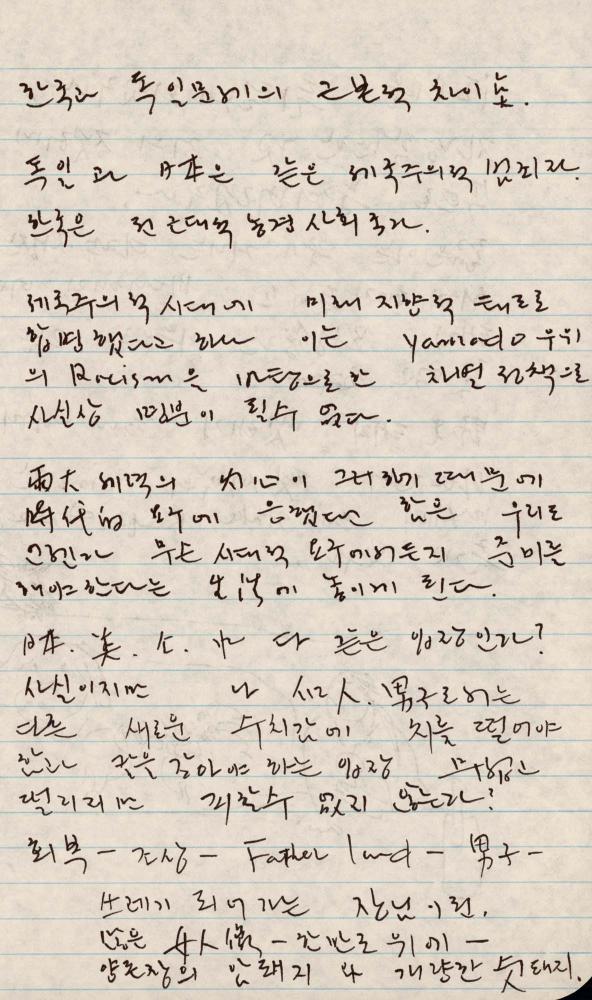 한국과 독일문제의 근본적 차이 늦.
독일과 日本은 같은 제국주의적 범죄자.
한국은 전근대적 농경사회국가.
제국주의적 시대에 미래 지향적 태도로
합병했다고 하나 이는 yamado 우위
의 Racism을 바탕으로한 차별정책으로
사실상 명분이 될수 없다.
両大 세력의 핵심이 그러하기 때문에
時代的 요구에 응했다는 함은 우리도
언젠가 무슨 시대적 요구에서든지 준비를
해야한다는 生活에 놓이게 된다.
日本. 美. 소. 中 다 같은 입장인가?
사실이지만 나 人. 男子로서는
다른 새로운 수치감에 치를 떨어야
한다 칼을 잡아야 하는 입장 무섭고
떨리지만 피할수 없지 않는가?
회복 - 조상 - Father land - 男子 -
쓰레기 되어가는 장님이런.
많은 女人像 - 한반도 위에 -
양돈장의 암돼지 와 개량한 숫돼지.